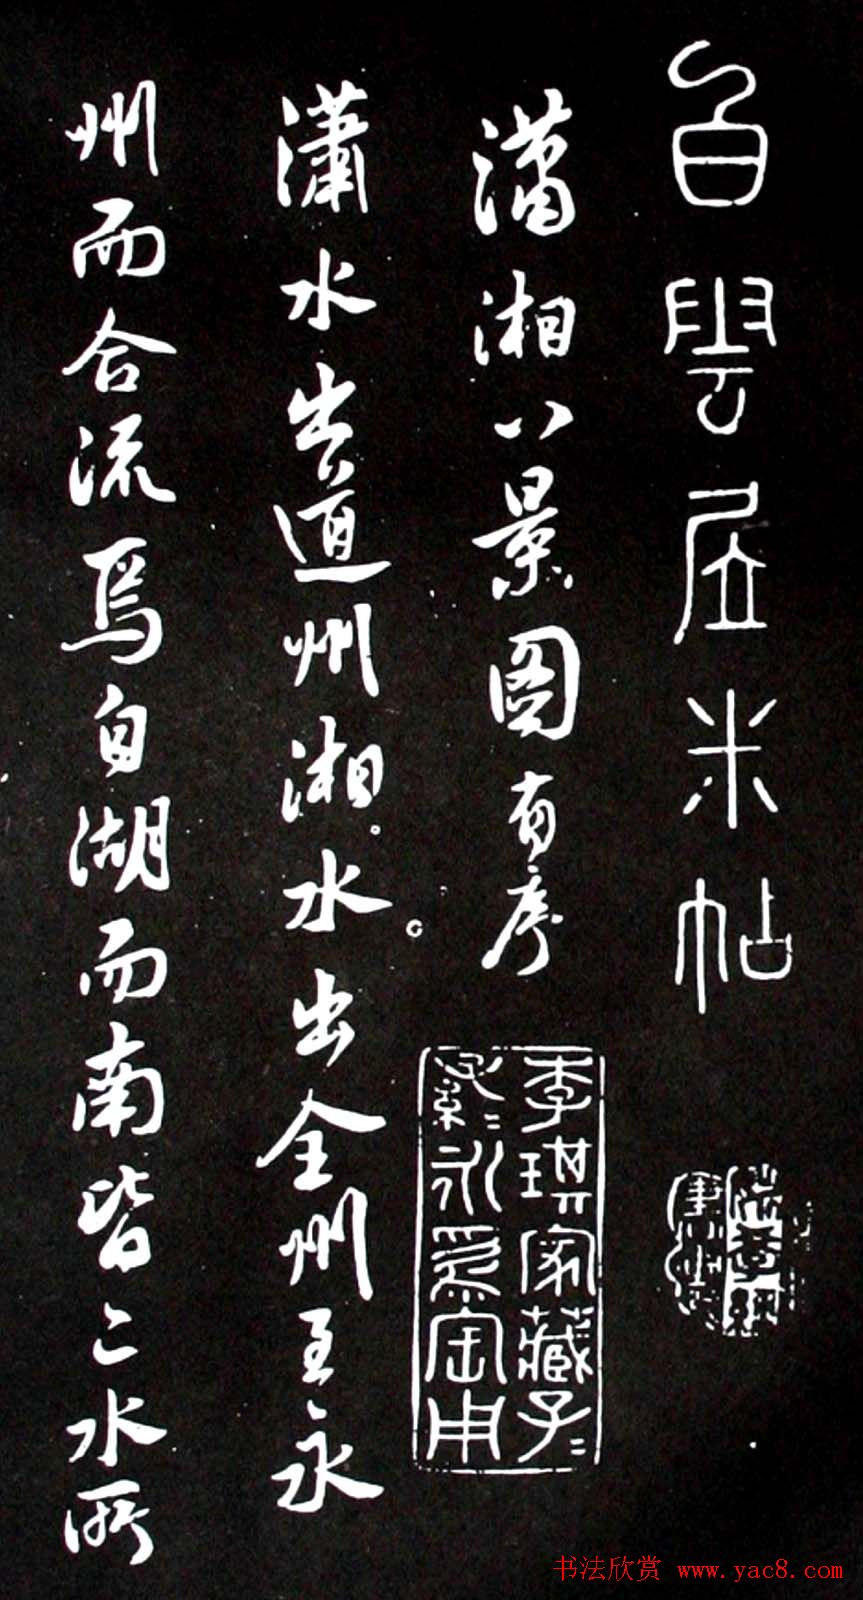 白雲居米帖
瀟湘八景圖有序
家藏子〻
孫〻永為寶用
瀟水出道州湘水出全州至永
州而合流焉自湖而南皆二水所
书法欣赏 www.yac8.com